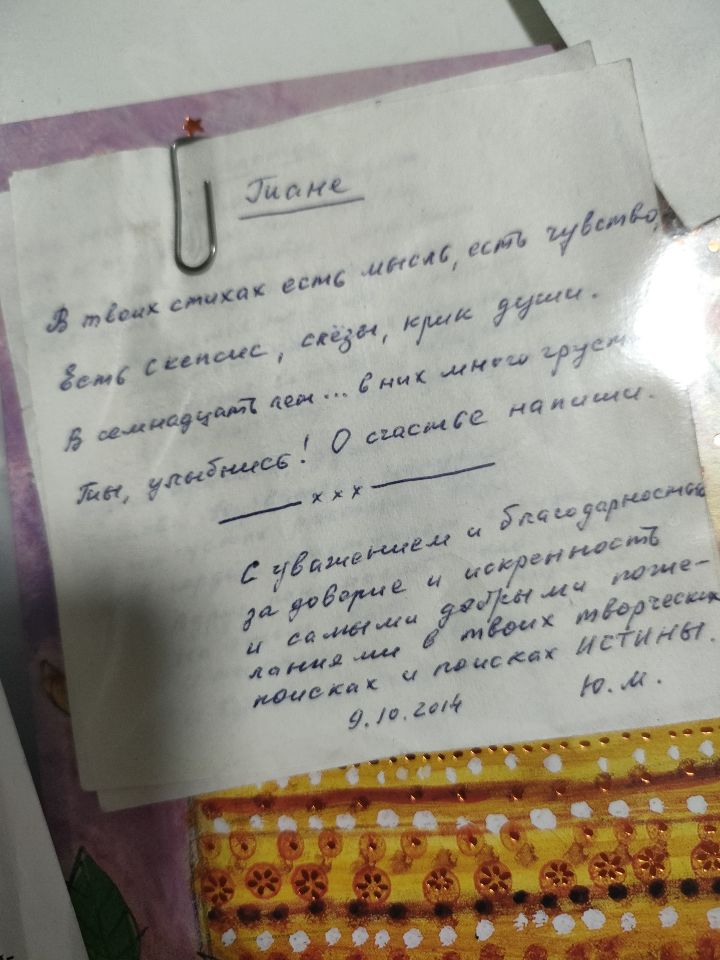 Тиане
В твоих стихах есть мысль, есть чувство,
Есть скепсис, слёзы, крик души.
В семнадцать лет... в них много груст
Ты, улыбнись! О счастье напиши.
x x x
С уважением и благодарностью
за доверие и искренность
и самыми добрыми поже-
ланиями в твоих творческих
поисках и поисках ИСТИНЫ.
9.10.2014 Ю.М.